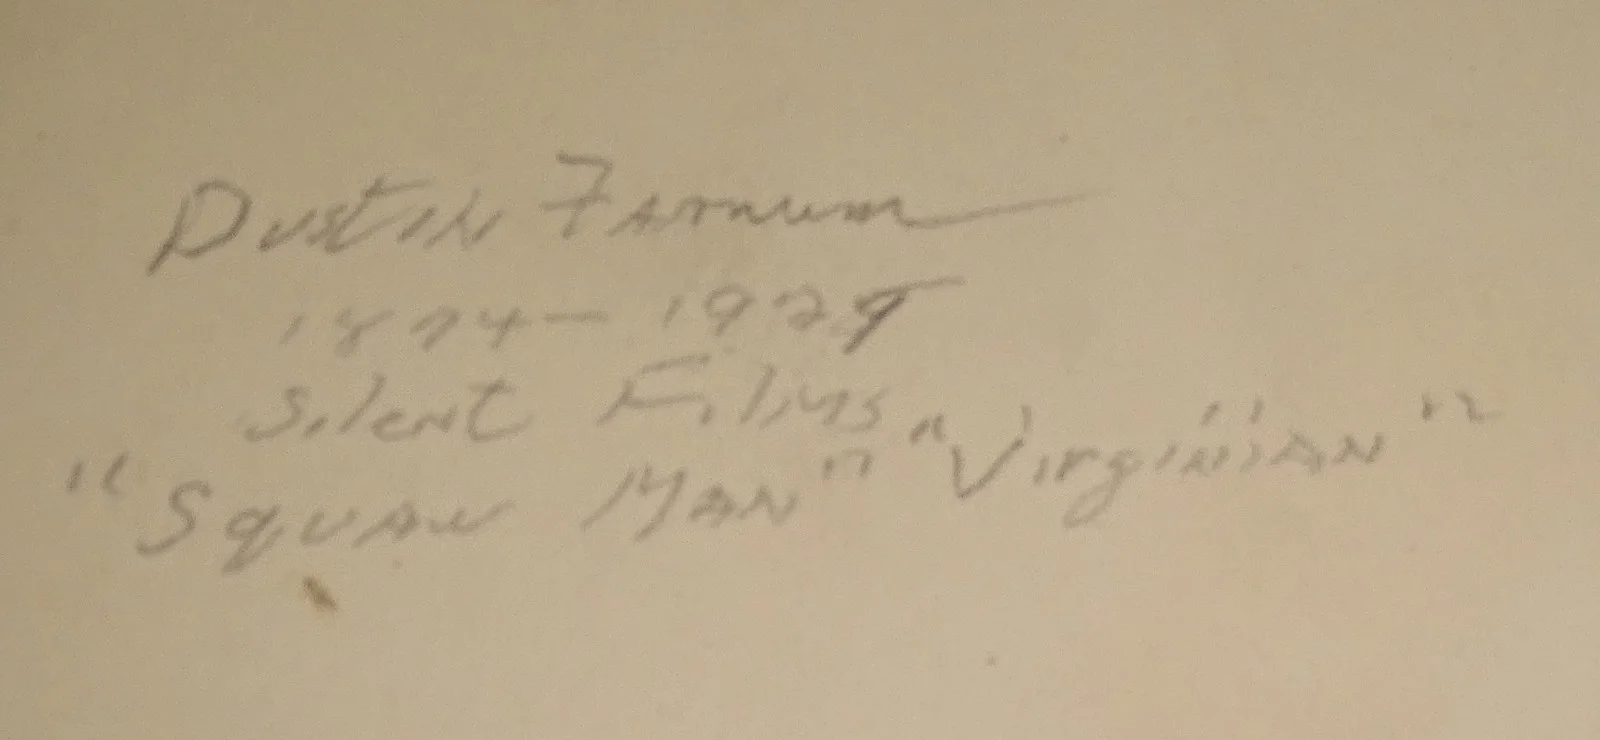 Dustin Farnum
1874 - 1929
Silent Films
"Squaw Man" "Virginian"